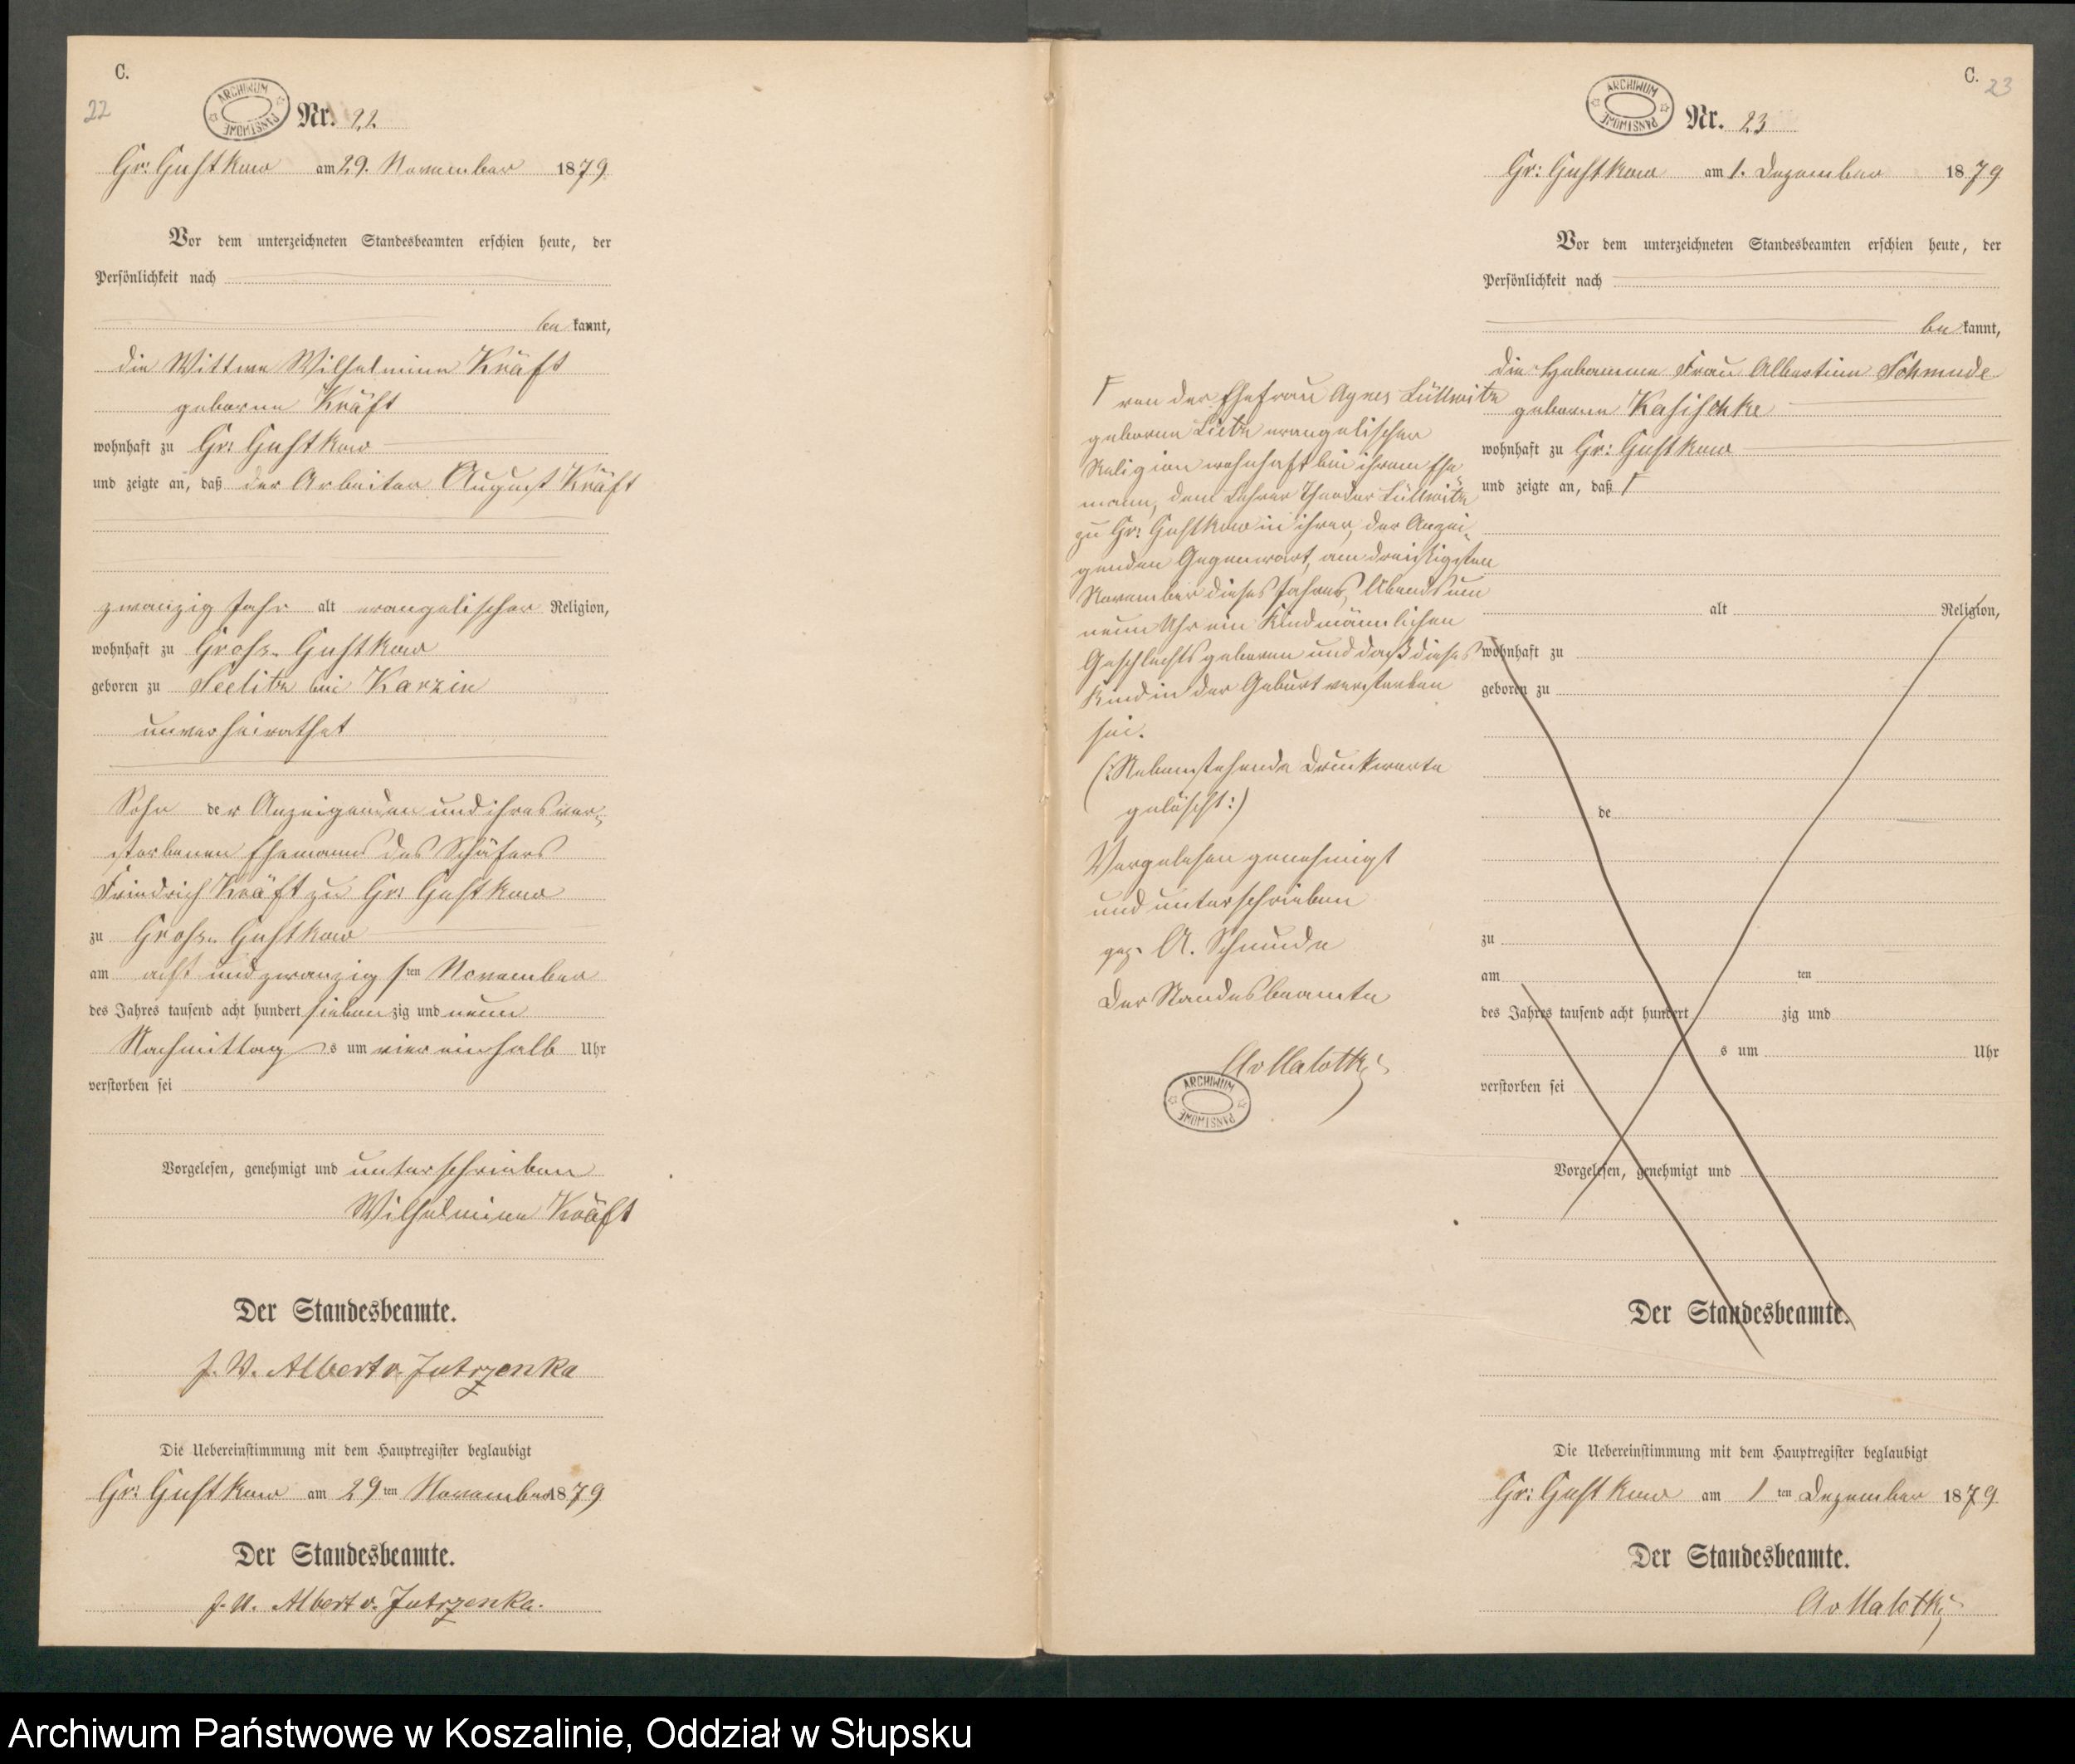 C.
22
ARCHIWUM PAŃSTWOWE
Nr. 22
Gr: Gustkow am 29. November 1879
Vor dem unterzeichneten Standesbeamten erschien heute, der
Persönlichkeit nach
be kannt,
die Wittwe Wilhelmine Kräft
geborne Kräft
wohnhaft zu Gr: Gustkow
und zeigte an, daß der Arbeiter August Kräft
zwanzig Jahr alt evangelischer Religion,
wohnhaft zu Gross- Gustkow
geboren zu Seelitz bei Karzin
unverheirathet
Sohn der Anzeigenden und ihres ver-
storbenen Ehemanns des Schäfers
Friedrich Kräft zu Gr: Gustkow
zu Gross- Gustkow
am acht und zwanzigsten November
des Jahres tausend acht hundert siebenzig und neun
Nachmittags um vier einhalb Uhr
verstorben sei
Vorgelesen, genehmigt und unterschrieben
Wilhelmine Kräft
Der Standesbeamte.
J. V. Albert v. Jutrzenka
Die Uebereinstimmung mit dem Hauptregister beglaubigt
Gr: Gustkow am 29ten November 1879
Der Standesbeamte.
J. V. Albert v. Jutrzenka.
C.
23
ARCHIWUM PAŃSTWOWE
Nr. 23
Gr: Gustkow am 1. Dezember 1879
Vor dem unterzeichneten Standesbeamten erschien heute, der
Persönlichkeit nach
be kannt,
die Hebamme Frau Albertine Schmude
geborne Kasischke
wohnhaft zu Gr: Gustkow
und zeigte an, daß
von der Ehefrau Agnes Lüllwitz
geborne Lietz evangelischer
Religion wohnhaft bei ihrem Ehe
mann, dem Lehrer Theodor Lüllwitz
zu Gr: Gustkow in ihrer, der Anzei-
genden Gegenwart, am dreißigsten
November dieses Jahres, Abends um
neun Uhr ein Kind männlichen
Geschlechts geboren und daß dieses
Kind in der Geburt verstorben
sei.
(: Nebenstehende Druckworte
gelöscht :)
Vorgelesen genehmigt
und unterschrieben
gez. A. Schmude
Der Standesbeamte
AvMalottki
ARCHIWUM PAŃSTWOWE
alt Religion,
wohnhaft zu
geboren zu
de
zu
am ten
des Jahres tausend acht hundert zig und
s um Uhr
verstorben sei
Vorgelesen, genehmigt und
Der Standesbeamte.
Die Uebereinstimmung mit dem Hauptregister beglaubigt
Gr: Gustkow am 1ten Dezember 1879
Der Standesbeamte.
AvMalottki
Archiwum Państwowe w Koszalinie, Oddział w Słupsku